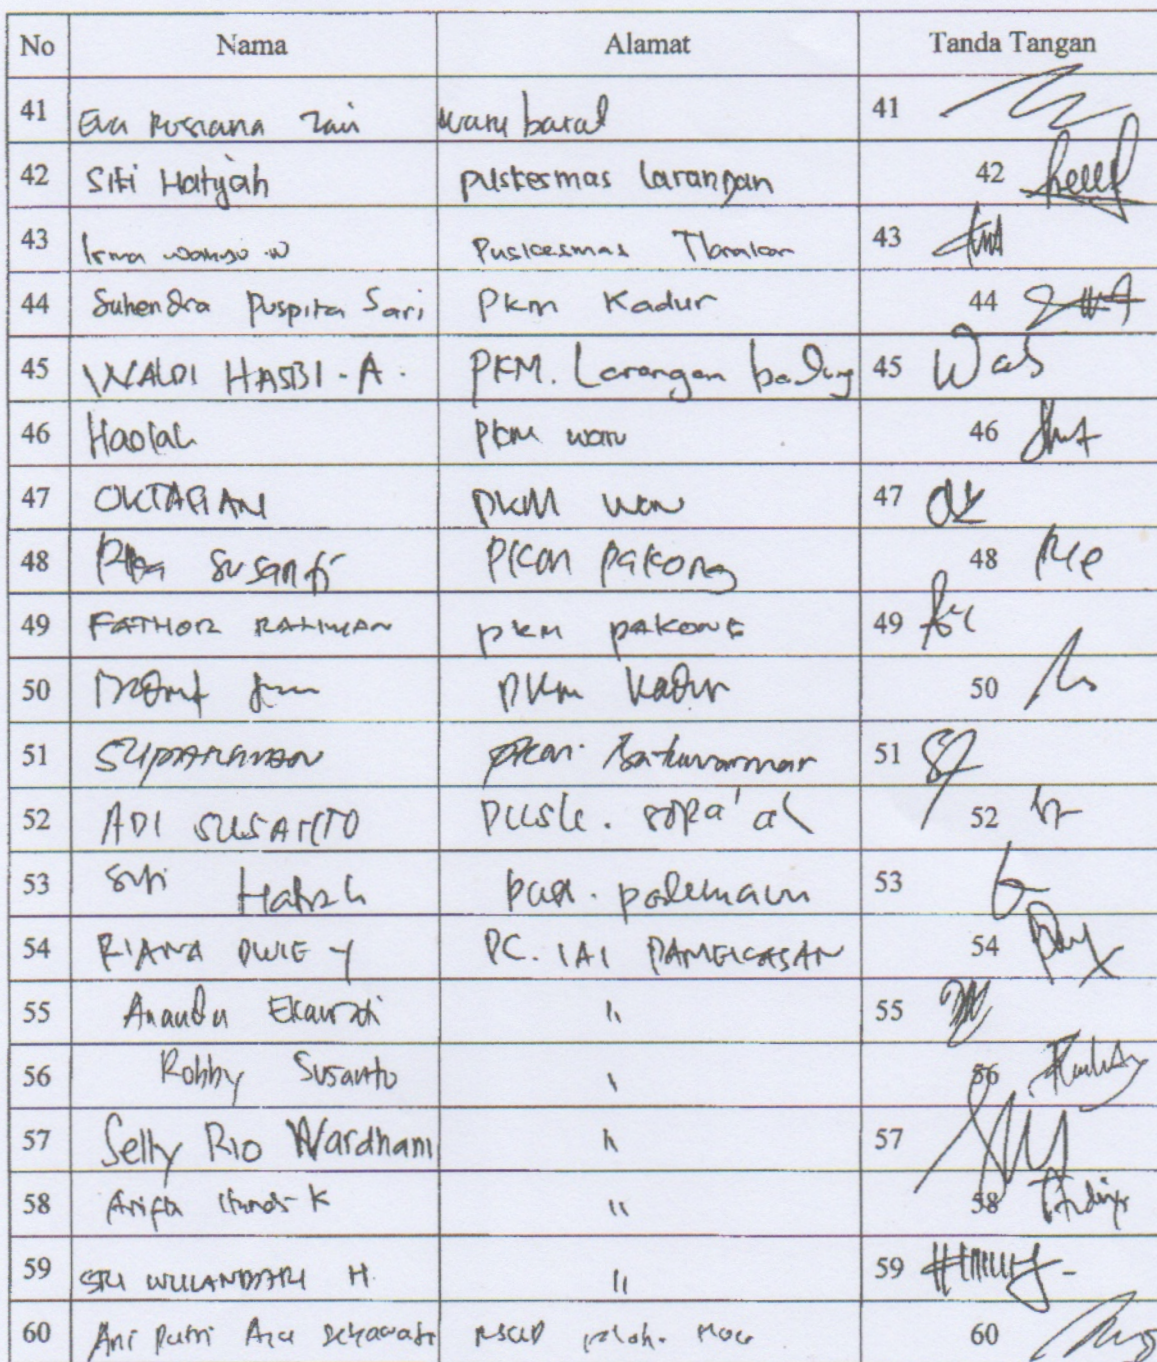 No Nama Alamat Tanda Tangan
41 Eva Rusiana Zain waru barat 41
42 Siti Hatijah puskesmas larangan 42
43 Irma Puskesmas Tlanakan 43
44 Suhendra Puspita Sari Pkm Kadur 44
45 WALDI HASBI. A. PKM. Larangan badung 45
46 Haolah PKM waru 46
47 OKTAFIAN PKM waru 47
48 Susanti PKM pakong 48
49 FATHOR RAHMAN PKM PAKONG 49
50 PKM Kadur 50
51 SUPARMAN PKM. Batumarmar 51
52 ADI SUSANTO PUSK. sopa'ah 52
53 Siti 53
54 RIANA DWIE Y PC. IAI PAMEKASAN 54
55 Ekawati " 55
56 Robby Susanto " 56
57 Selly Rio Wardhani " 57
58 Arifa K " 58
59 SRI WULANDARI H. " 59
60 Ani Putri Ayu Setyawati 60